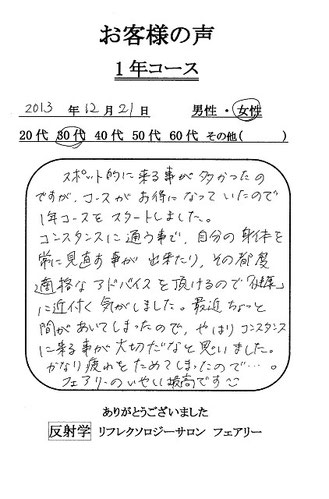 お客様の声
1年コース
2013 年 12 月 21 日 男性・女性
20代 30代 40代 50代 60代 その他( )
スポット的に来る事が多かったの
ですが、コースがお得になっていたので
1年コースをスタートしました。
コンスタンスに通う事で、自分の身体を
常に見直す事が出来たり、その都度
適格なアドバイスを頂けるので「健康」
に近付く気がしました。最近ちょっと
間があいてしまったので、やはりコンスタンス
に来る事が大切だなと思いました。
かなり疲れをためてしまったので…。
フェアリーのいやしは最高です
ありがとうございました
反射学 リフレクソロジーサロン フェアリー